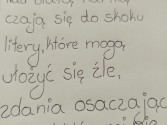 czają się do skoku
litery, które mogą
ułożyć się źle,
zdania osaczając